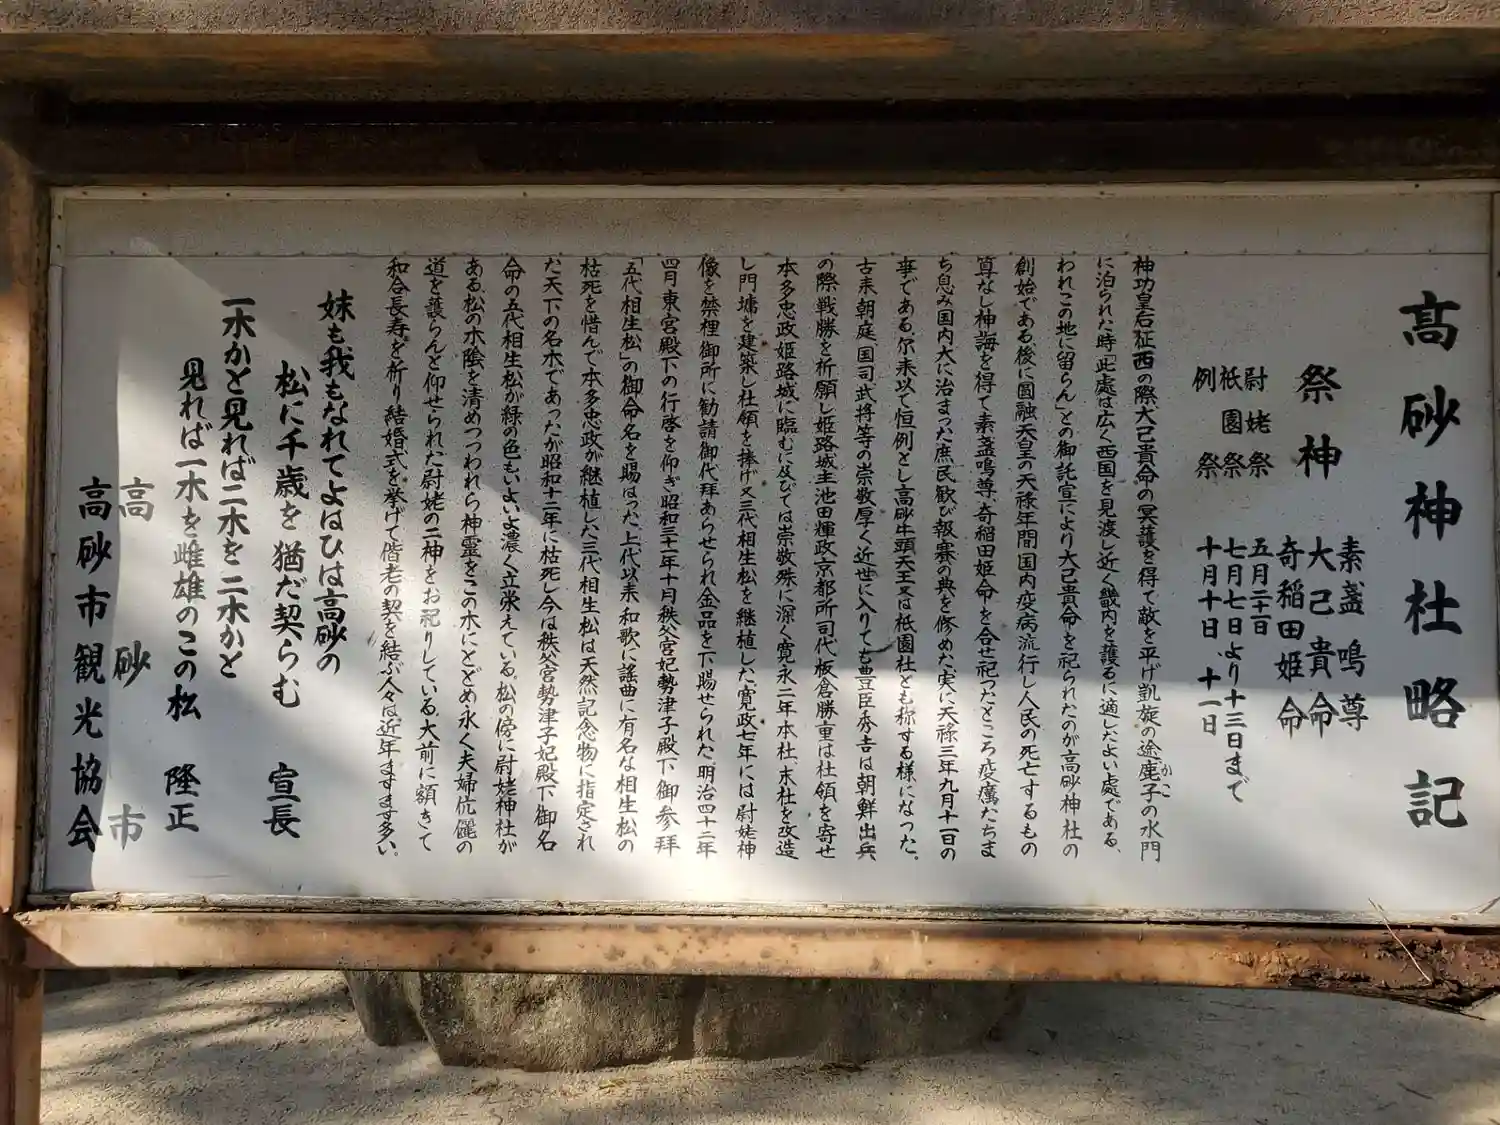 高砂神社略記
祭神 素盞鳴尊
大己貴命
奇稲田姫命
尉姥祭 五月二十一日
祇園祭 七月七日より十三日まで
例祭 十月十日、十一日
神功皇后征西の際大己貴命の冥護を得て敵を平げ凱旋の途鹿子の水門
かこ
に泊られた時「此處は広く西国を見渡し近く畿内を護るに適したよい處である、
われこの地に留らん」との御託宣により大己貴命を祀られたのが高砂神社の
創始である。後に圓融天皇の天禄年間国内疫病流行し人民の死亡するもの
算なし神誨を得て素盞鳴尊、奇稲田姫命を合せ祀つたところ疫癘たちま
ち息み国内大に治まつた庶民歓び報賽の典を修めた。実に天禄三年九月十一日の
事である。尓来以て恒例とし高砂牛頭天王又は祇園社とも称する様になつた。
古来朝庭、国司武将等の崇敬厚く近世に入りても豊臣秀吉は朝鮮出兵
の際戦勝を祈願し姫路城主池田輝政京都所司代板倉勝重は社領を寄せ
本多忠政姫路城に臨むに及びては崇敬殊に深く寛永二年本社、末社を改造
し門墉を建築し社領を捧げ又三代相生松を継植した。寛政七年には尉姥神
像を禁裡御所に勧請御代拝あらせられ金品を下賜せられた。明治四十二年
四月東宮殿下の行啓を仰ぎ昭和三十一年十月秩父宮妃勢津子殿下御参拝
「五代相生松」の御命名を賜はつた。上代以来和歌に謡曲に有名な相生松の
枯死を惜んで本多忠政が継植した三代相生松は天然記念物に指定され
た天下の名木であつたが昭和十二年に枯死し今は秩父宮勢津子妃殿下御名
命の五代相生松が緑の色もいよいよ濃く立栄えている。松の傍に尉姥神社が
ある。松の木陰を清めつつわれら神霊をこの木にとどめ永く夫婦伉儷の
道を護らんと仰せられた尉姥の二神をお祀りしている。大前に額きて
和合長寿を祈り結婚式を挙げて偕老の契を結ぶ人々は近年ますます多い。
妹も我もなれてよはひは高砂の
松に千歳を猶だ契らむ 宣長
一木かと見れば二木を二木かと
見れば一木を雌雄のこの松 隆正
高砂市
高砂市観光協会